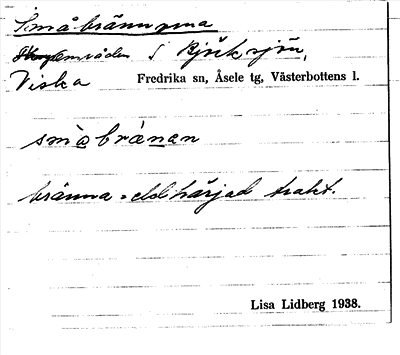 Småbrännorna
Skogsområden S Björksjön,
Viska Fredrika sn, Åsele tg, Västerbottens l.
småbrànan
bränna = eldhärjad trakt.
Lisa Lidberg 1938.